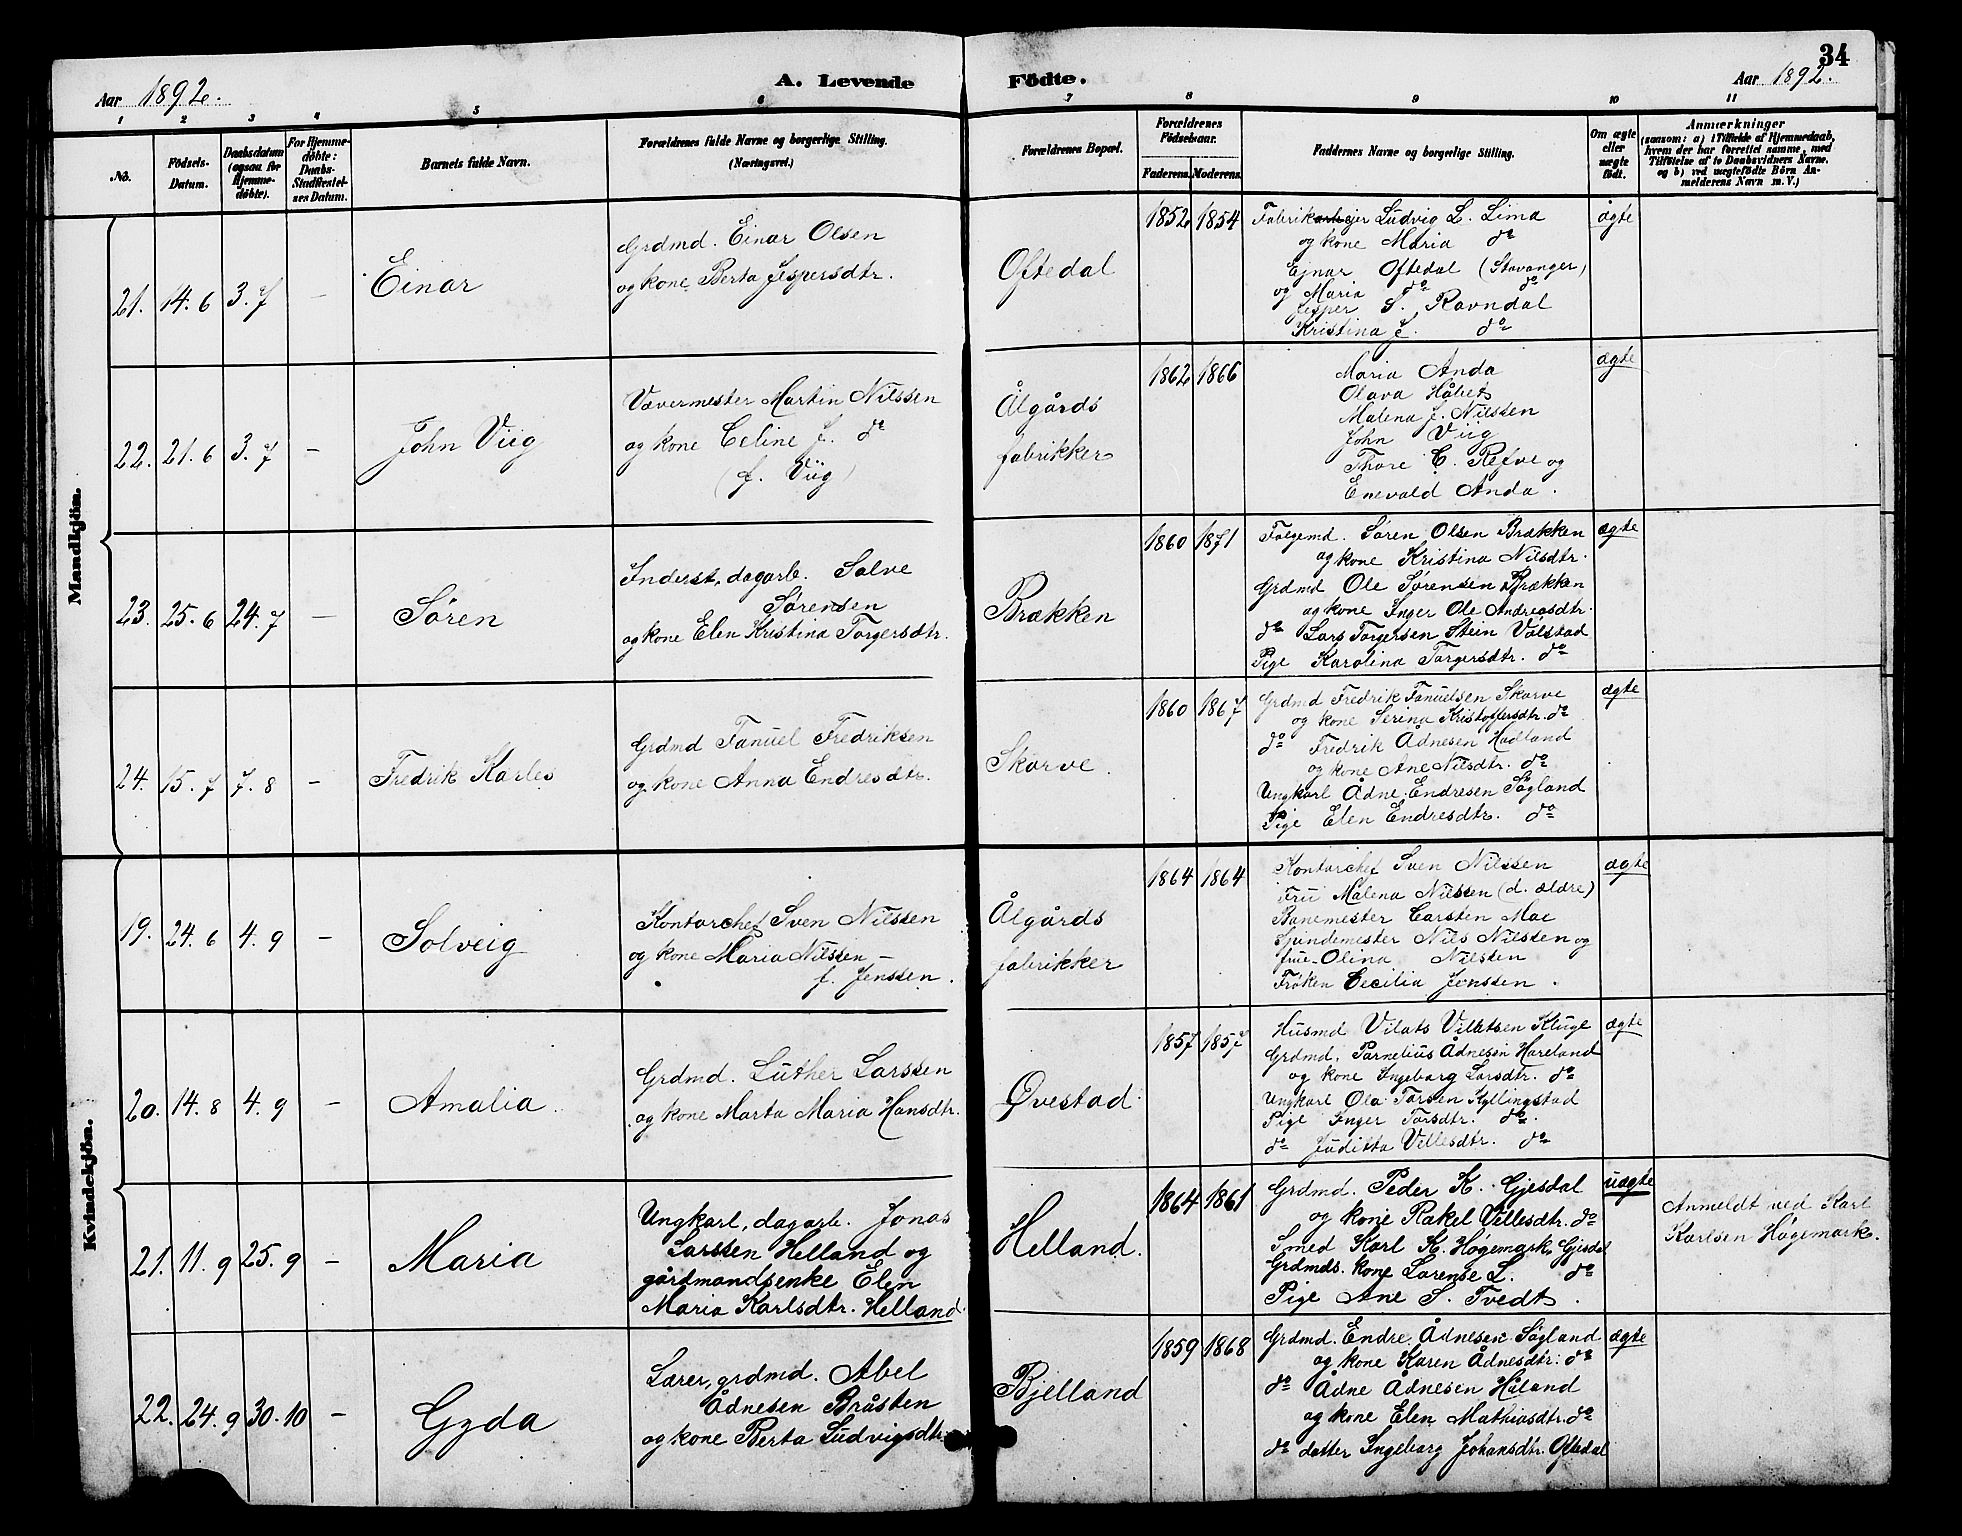 34
Aar 1892.
A. Levende Födte.
Aar 1892.
1 2 3 4 5 6 7 8 9 10 11
No.
Födsels-
Datum.
Daabsdatum
(ogsaa for
Hjemme-
döbte).
For Hjemme-
døbte:
Daabs-
Stadfæstel-
ses Datum.
Barnets fulde Navn.
Forældrenes fulde Navne og borgerlige Stilling.
(Næringsvei.)
Forældrenes Bopæl.
Forældrenes
Födselsaar.
Faderens. Moderens.
Faddernes Navne og borgerlige Stilling.
Om ægte
eller
uægte
födt.
Anmærkninger
(saasom: a) i Tilfælde af Hjemmedaab,
hvem der har forrettet samme, med
Tilføielse af to Daabsvidners Navne,
og b) ved uægtefödte Börn An-
melderens Navn m. V.)
Mandkjön.
21. 14.6 3.7 –
Einar
Grdmd. Einar Olsen
og kone Berta Jespersdtr.
Oftedal
1852 1854
Fabrikejer Ludvig L. Lima
og kone Maria do
Ejnar Oftedal (Stavanger)
og Maria do do
Jesper S. Ravndal
Kristina J. do
ægte
22. 21.6 3.7 –
John Viig
Vævermester Martin Nilssen
og kone Celine J. do
(f. Viig)
Ålgårds
fabrikker
1862 1866
Maria Anda
Olava Håbet
Malena J. Nilssen
John Viig
Thore C. Refve og
Enevald Anda.
ægte
23. 25.6 24.7 –
Søren
Inderst, dagarb. Salve
Sørensen
og kone Elen Kristina Torgersdtr.
Brækken
1860 1871
Følgemd. Søren Olsen Brækken
og kone Kristina Nilsdtr.
Grdmd Ole Sørensen Brækken
og kone Inger Ole Andreasdtr.
do Lars Torgersen Stein Vølstad
Pige Karolina Torgersdtr. do
ægte
24. 15.7 7.8 –
Fredrik Karles
Grdmd Fanuel Fredriksen
og kone Anna Endresdtr.
Skarve.
1860 1867
Grdmd Fredrik Fanuelsen Skarve
og kone Serina Kristoffersdtr. do
do Fredrik Ådnesen Hadland
og kone Ane Nilsdtr. do
Ungkarl Ådne Endresen Søgland
Pige Elen Endresdtr. do
ægte
Kvindekjön.
19. 24.6 4.9 –
Solveig
Kontorchef Sven Nilssen
og kone Maria Nilssen –
f. Jenssen.
Ålgårds
fabrikker
1864 1864
Kontorchef Sven Nilssen
Fru Malena Nilssen (d. ældre)
Banemester Carsten Moe
Spindemester Nils Nilssen og
frue Olina Nilssen
Frøken Cecilia Jenssen.
ægte
20. 14.8 4.9 –
Amalia.
Grdmd. Luther Larssen
og kone Marta Maria Hansdtr.
Øvestad
1857 1857
Husmd Vilats Villatsen Kluge
Grdmd, Parnelius Ådnesen Hareland
og kone Ingeborg Larsdtr. do
Ungkarl Ola Torsen Kyllingstad
Pige Inger Torsdtr. do
do Juditta Villesdtr. do
ægte
21. 11.9 25.9 –
Maria
Ungkarl, dagarb. Jonas
Larssen Helland og
gårdmandsenke Elen
Maria Karlsdtr. Helland
Helland.
1864 1861
Grdmd. Peder K. Gjesdal
og kone Rakel Villesdtr. do
Smed Karl K. Høgemark, Gjesdal
Grdmds. kone Lorense L. do
Pige Ane S. Tvedt.
uægte
Anmeldt ved Karl
Karlsen Høgemark.
22. 24.9 30.10 –
Gyda
Lærer, grdmd. Abel
Ådnesen Bråsten
og kone Berta Ludvigsdtr.
Bjelland
1859 1868
Grdmd. Endre Ådnesen Søgland
og kone Karen Ådnesdtr. do
do Ådne Ådnesen Håland
og kone Elen Mathiasdtr. do
do datter Ingeborg Johansdtr. Oftedal
ægte